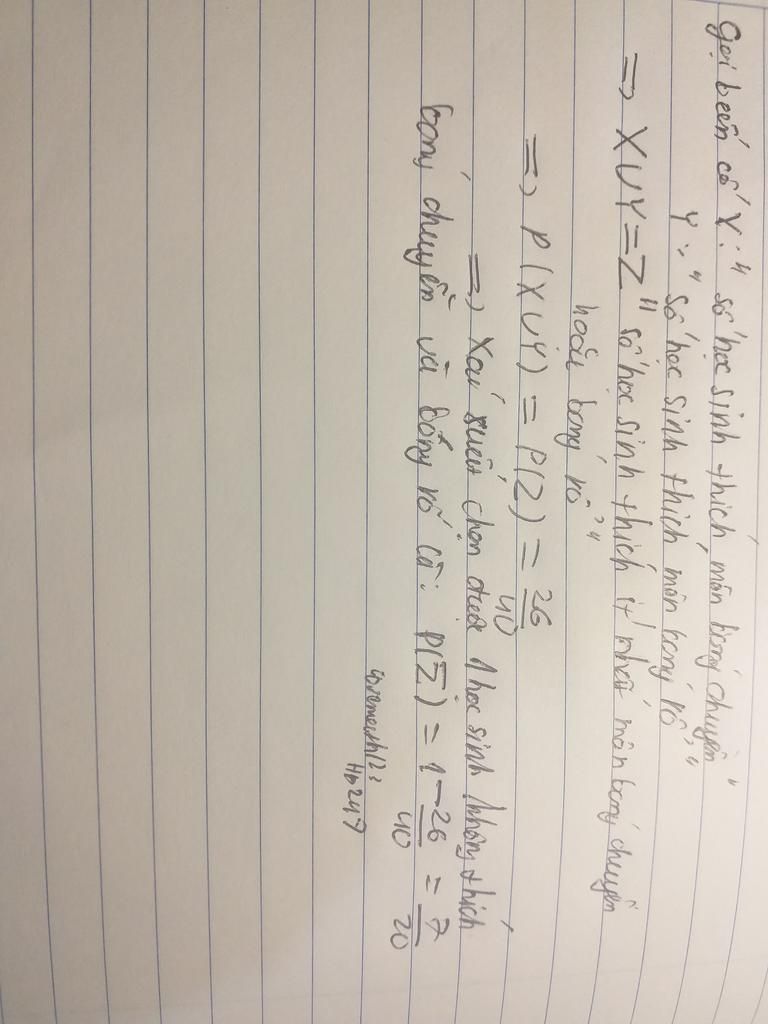 Gọi biến cố X: " số học sinh thích môn bóng chuyền"
Y: " số học sinh thích môn bóng rổ"
=> X∪Y = Z " số học sinh thích ít nhất môn bóng chuyền
hoặc bóng rổ"
=> P(X∪Y) = P(Z) = 26/40
=> Xác suất chọn được 1 học sinh không thích
bóng chuyền và bóng rổ cả: P(Z̅) = 1 - 26/40 = 7/20